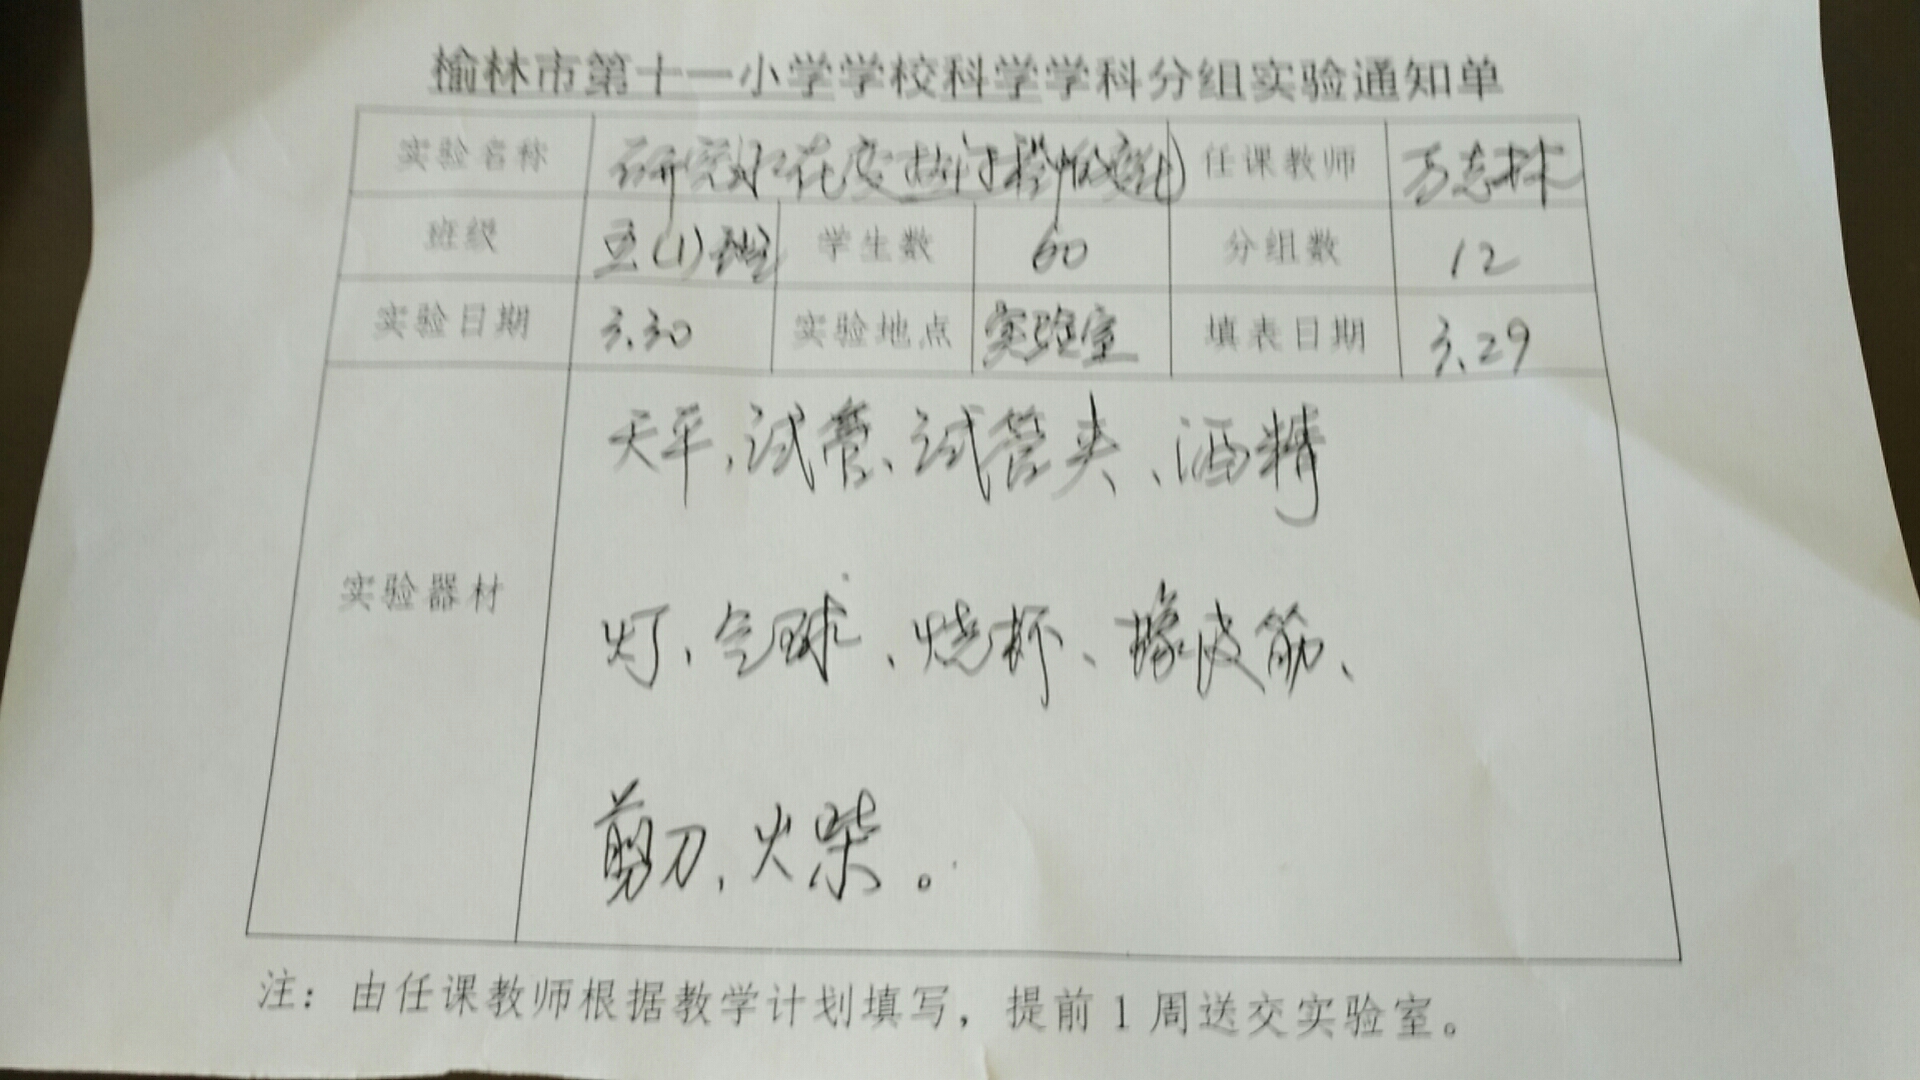 榆林市第十一小学学校科学学科分组实验通知单
实验名称 研究水在变 任课教师 志林
班级 五(1)班 学生数 60 分组数 12
实验日期 3.30 实验地点 实验室 填表日期 3.29
实验器材
天平、试管、试管夹、酒精
灯、气球、烧杯、橡皮筋、
剪刀、火柴。
注：由任课教师根据教学计划填写，提前1周送交实验室。